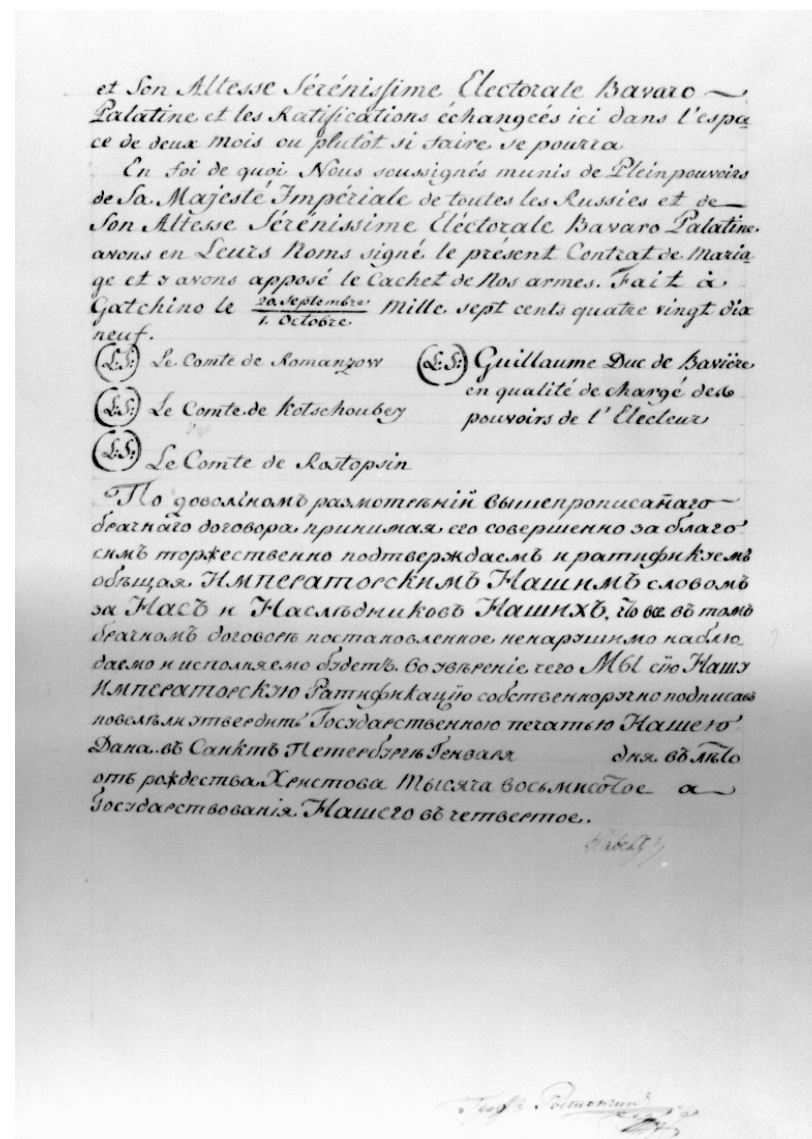 et Son Altesse Sérénissime Electorale Bavaro
Palatine et les Ratifications échangeés ici dans l'espa
ce de deux mois ou plutot si faire se pourra
En foi de quoi Nous soussignés munis de Pleinpouvoirs
de Sa Majesté Impériale de toutes les Russies et de
Son Altesse Sérénissime Eléctorale Bavaro Palatine
avons en Leurs Noms signé le présent Contrat de Maria
ge et y avons apposé le Cachet de Nos armes. Fait à
Gatchino le 20. Septembre / 1. Octobre Mille sept cents quatre vingt dix
neuf.
(L.S.) Le Comte de Romanzow
(L.S.) Le Comte de Kotschoubey
(L.S.) Le Comte de Rostopsin
(L.S.) Guillaume Duc de Bavière
en qualité de chargé des
pouvoirs de l'Electeur
По доволномъ размотрѣнiй вышепрописанаго
брачнаго договора, принимая его совершенно за благо
симъ торжественно подтверждаемъ и ратификуемъ
обѣщая Императорскимъ Нашимъ словомъ
за Насъ и Наслѣдниковъ Нашихъ, что все въ томъ
брачномъ договорѣ постановленное, ненарушимо наблю,
даемо и исполняемо будетъ. Во увѣренiе чего Мы сiю Нашу
Императорскую Ратификацiю собственноручно подписавъ
повелѣли утвердить Государственною печатью Нашею
Дана въ Санктъ Петербургѣ Генваря дня въ лѣто
отъ рождества Христова тысяча восьмисотое а
Государствованiя Нашего въ четвертое.
Павелъ
Графъ Ростопчинъ